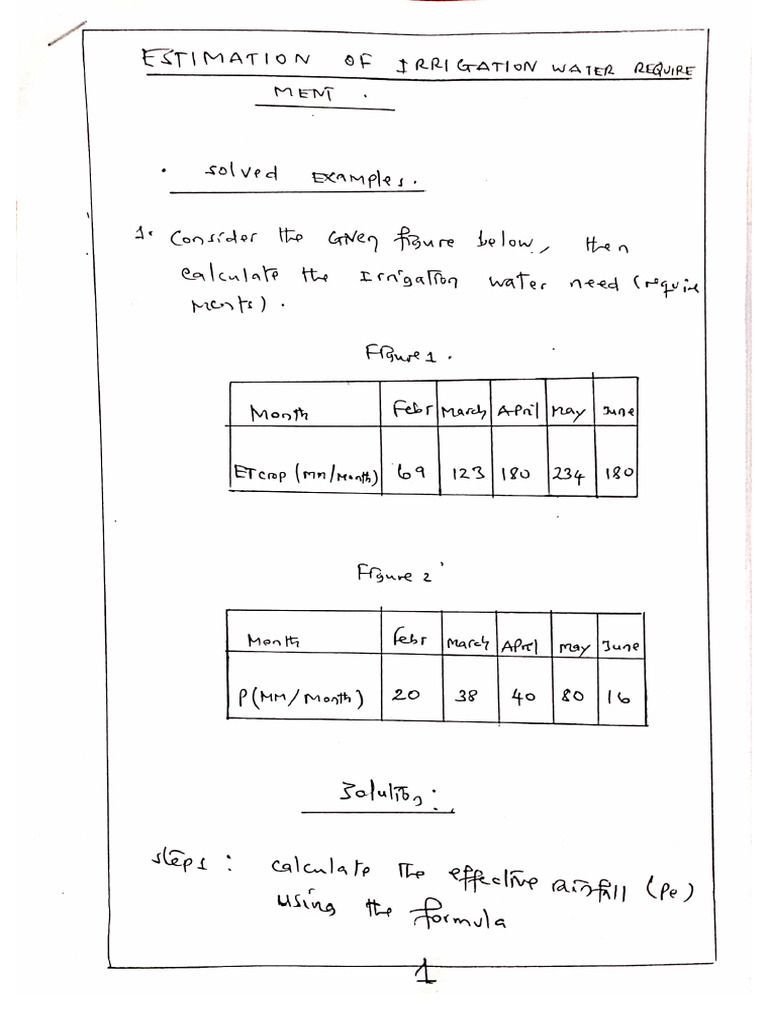 ESTIMATION OF IRRIGATION WATER REQUIRE
MENT.
. Solved Examples.
1. Consider the Given figure below, then
calculate the Irrigation water need (require
ments).
Figure 1.
Month Febr March April May June
ETcrop (MM/Month) 69 123 180 234 180
Figure 2
Month Febr March April May June
P(MM/Month) 20 38 40 80 16
Solution:
steps1: calculate the effective rainfall (Pe)
using the formula
1